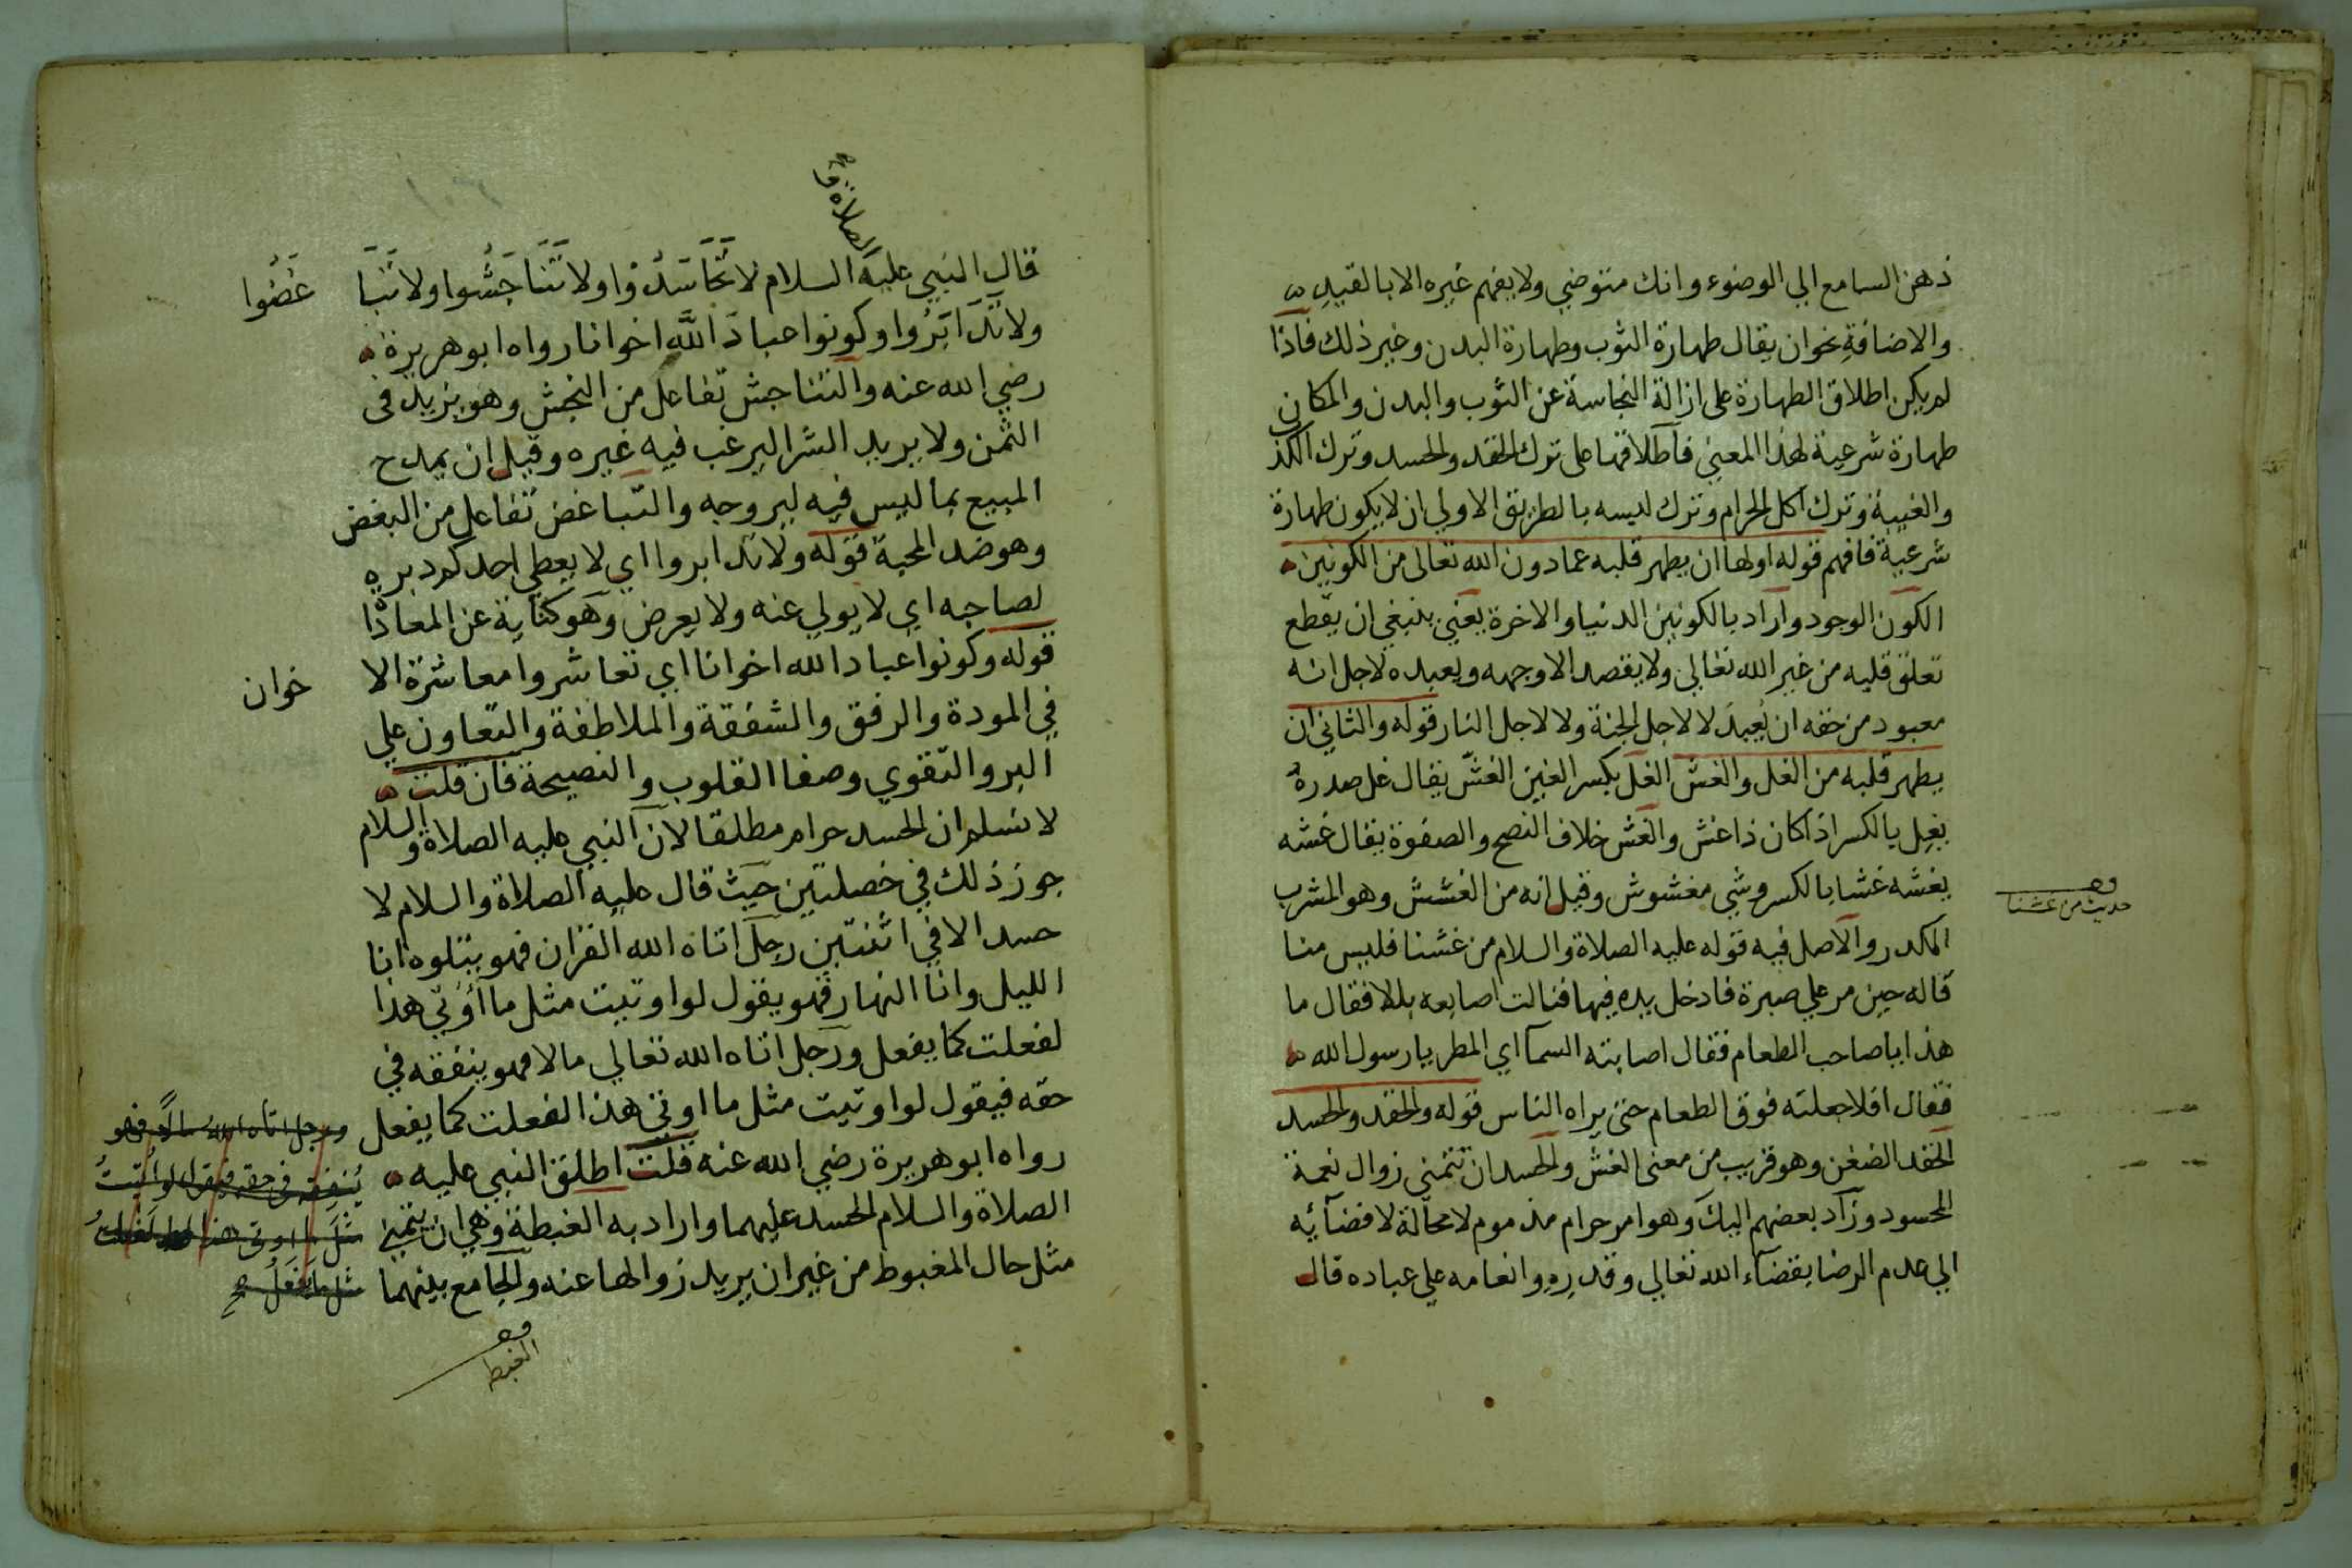 ذهن السامع الي الوضوء وانك متوضي ولا يفهم غيره الا بالقيد
والاضافة نحو ان يقال طهارة الثوب وطهارة البدن وغير ذلك فاذا
لم يكن اطلاق الطهارة على ازالة النجاسة عن الثوب والبدن والمكان
طهارة شرعية لهذا المعني فاطلاقها على ترك الحقد والحسد وترك الكذ
والغيبة وترك اكل الحرام وترك لبسه بالطريق الاولي ان لا يكون طهارة
شرعية فافهم قوله اولها ان يطهر قلبه عما دون الله تعالى من الكونين
الكون الوجود واراد بالكونين الدنيا والاخرة يعني ينبغي ان يقطع
تعلق قلبه من غير الله تعالي ولا يقصد الا وجهه ويعبده لاجل انه
معبود من حقه ان يُعبدَ لا لاجل الجنة ولا لاجل النار قوله والثاني ان
يطهر قلبه من الغل والغش الغل بكسر الغين الغشّ يقال غل صدره
يغِل بالكسر اذا كان ذا غش والغش خلاف النصح والصفوة يقال غشه
يغشه غشا بالكسر وشي مغشوش وقيل انه من الغشش وهو المشرب
المكدر والاصل فيه قوله عليه الصلاة والسلام من غشنا فليس منا
قاله حين مر علي صبرة فادخل يده فيها فنالت اصابعه بللا فقال ما
هذا يا صاحب الطعام فقال اصابته السمآ اي المطر يا رسول الله
فقال افلا جعلته فوق الطعام حتى يراه الناس قوله والحقد والحسد
الحقد الضغن وهو قريب من معنى الغش والحسد ان تتمنى زوال نعمة
المحسود وزاد بعضهم اليك وهو امر حرام مذموم لا محالة لافضآئه
الي عدم الرضا بقضآء الله تعالي وقدره وانعامه علي عباده قال
وهـ
حديث من غشنا
الصلاة و
قال النبي عليه السلام لا تَحَاسَدُوا ولا تَنَاجَشُوا ولا تَبَا غَضُوا
ولا تَدَابَرُوا وكونوا عبادَ اللَّهِ اخوانا رواه ابو هريرة
رضي الله عنه والتناجش تفاعل من النجش وهو يزيد في
الثمن ولا يريد الشرا ليرغب فيه غيره وقيل ان يمدح
المبيع بما ليس فيه ليروجه والتباغض تفاعل من البغض
وهو ضد المحبة قوله ولا تدابروا اي لا يعطي احدكم دبره
لصاحبه اي لا يولي عنه ولا يعرض وهو كناية عن المعاداْ
قوله وكونوا عباد الله اخوانا اي تعاشروا معاشرة الا خوان
في المودة والرفق والشفقة والملاطفة والتعاون علي
البر والتقوي وصفا القلوب والنصيحة فان قلت
لا نسلم ان الحسد حرام مطلقا لان النبي عليه الصلاة والسلام
جوز ذلك في خصلتين حيث قال عليه الصلاة والسلام لا
حسد الا في اثنتين رجل اتاه الله القران فهو يتلوه انا
الليل وانا النهار فهو يقول لو اوتيت مثل ما اُوتي هذا
لفعلت كما يفعل ورجل اتاه الله تعالي مالا فهو ينفقه في
حقه فيقول لو اوتيت مثل ما اوتي هذا لفعلت كما يفعل
رواه ابو هريرة رضي الله عنه قلت اطلق النبي عليه
الصلاة والسلام الحسد عليهما واراد به الغبطة وهي ان يتمنى
مثل حال المغبوط من غير ان يريد زوالها عنه والجامع بينهما
ورجل اتاه الله مالاً فهو
يُنفقه في حقه فيقول لو اُوتيتُ
مثلَ ما اوتي هذا لفعلتُ
مثل ما يَفعَلُ صح
وهـ
الغبط